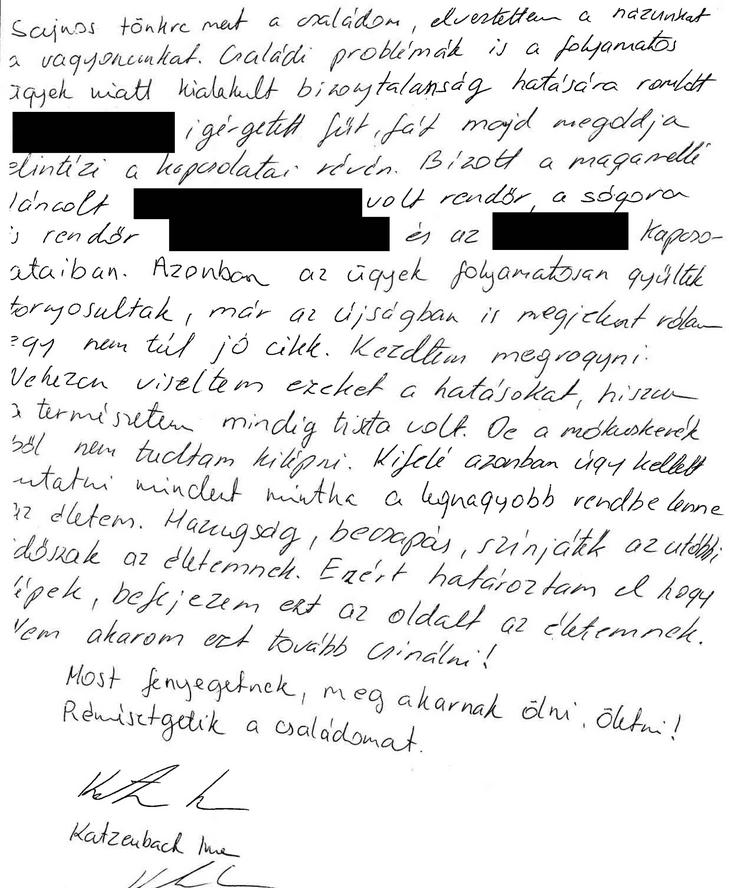 Sajnos tönkre ment a családom, elvesztettem a házunkat
a vagyonunkat. Családi problémák is a folyamatos
ügyek miatt kialakult bizonytalanság hatására romlott
igérgetett fűt, fát majd megoldja
elintézi a kapcsolatai révén. Bízott a maga mellé
láncolt volt rendőr, a sógora
is rendőr és az kapcso-
ataiban. Azonban az ügyek folyamatosan gyűltek
tornyosultak, már az újságban is megjelent rólam
egy nem túl jó cikk. Kezdtem megrogyni.
Nehezen viseltem ezeket a hatásokat, hiszen
a természetem mindig tiszta volt. De a mókuskerék
ből nem tudtam kilépni. Kifelé azonban úgy kellett
utatni mindent mintha a legnagyobb rendbe lenne
az életem. Hazugság, becsapás, színjáték az utóbbi
időszak az életemnek. Ezért határoztam el hogy
lépek, befejezem ezt az oldalt az életemnek.
Nem akarom ezt tovább csinálni!
Most fenyegetnek, meg akarnak ölni, öletni!
Rémisztgetik a családomat.
Katzenbach Imre